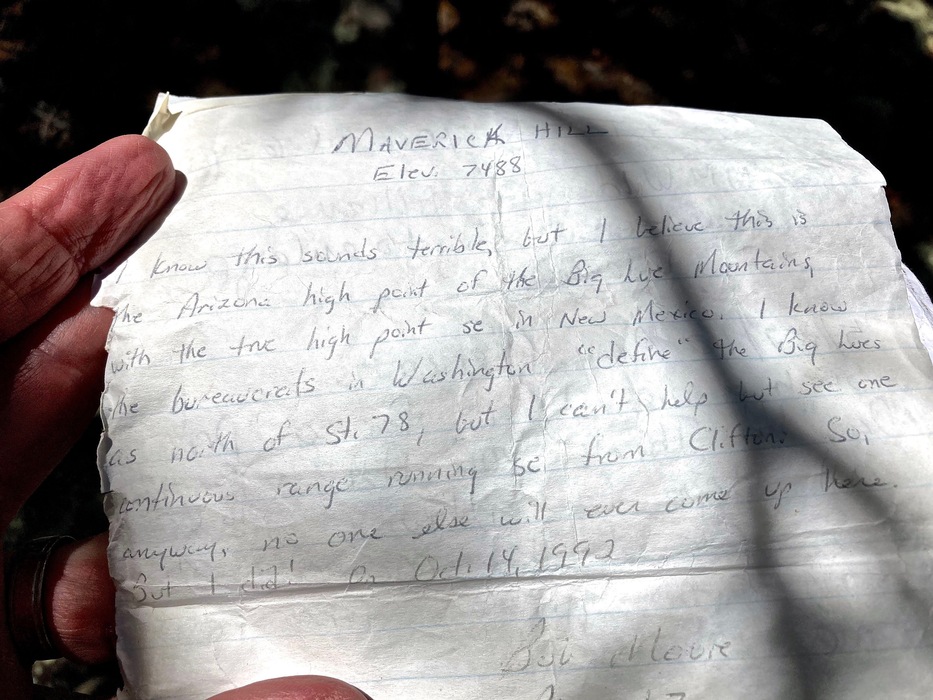 MAVERICK HILL
Elev. 7488
I know this sounds terrible, but I believe this is
the Arizona high point of the Big Lue Mountains,
with the true high point se in New Mexico. I know
the bureaucrats in Washington "define" the Big Lues
as north of St. 78, but I can't help but see one
continuous range running se from Clifton. So,
anyway, no one else will ever come up there.
But I did! On Oct. 14, 1992
Bob Moore